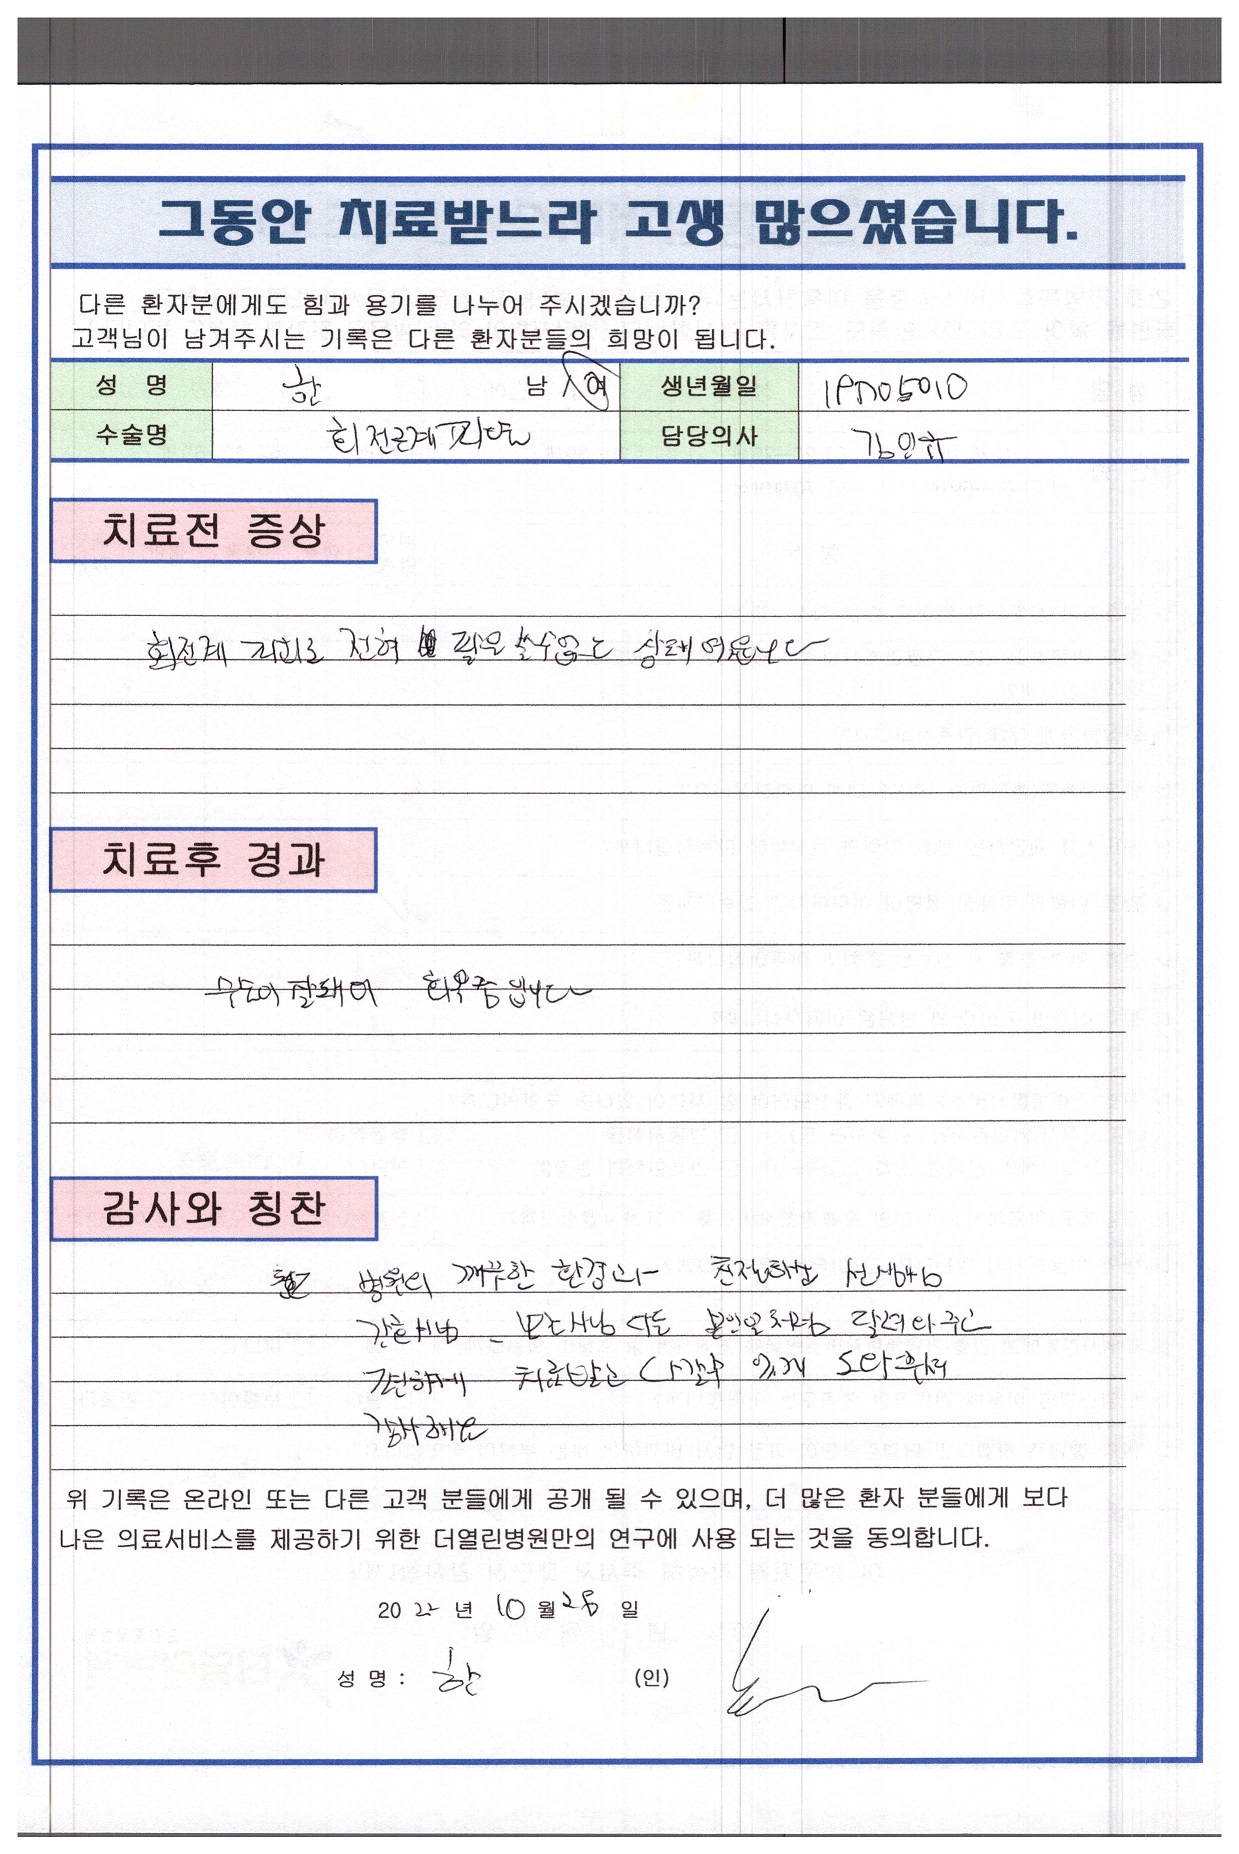 그동안 치료받느라 고생 많으셨습니다.
다른 환자분에게도 힘과 용기를 나누어 주시겠습니까?
고객님이 남겨주시는 기록은 다른 환자분들의 희망이 됩니다.
성 명 한 남 / 여 생년월일
수술명 회전근계파열 담당의사 김인규
치료전 증상
회전계 전혀 팔을 쓸수없는 상태였습니다
치료후 경과
수술이 잘돼어 회복중입니다
감사와 칭찬
병원의 깨끗한 환경과 친절하신 선생님
간호사님 모두 본인일처럼 달려와주고
편하게 치료받고 나갈수 있게 도와줘서
감사해요
위 기록은 온라인 또는 다른 고객 분들에게 공개 될 수 있으며, 더 많은 환자 분들에게 보다
나은 의료서비스를 제공하기 위한 더열린병원만의 연구에 사용 되는 것을 동의합니다.
20 22 년 10 월 28 일
성 명 : 한 (인)